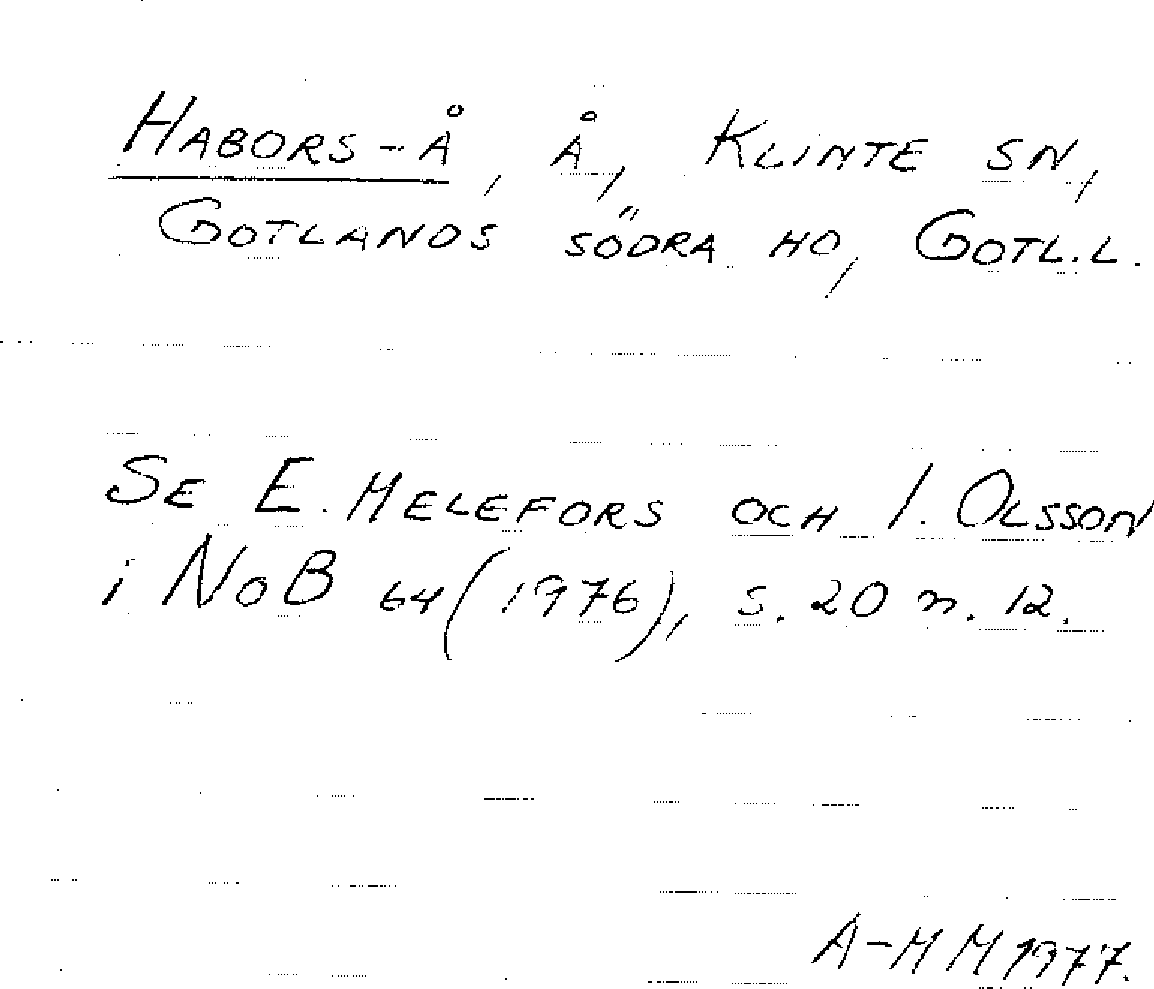 HABORS-Å, Å, KLINTE SN,
GOTLANDS SÖDRA HD, GOTL.L.
SE E. MELEFORS OCH I. OLSSON
i NoB 64 (1976), s. 20 n. 12.
A-MM 1977.